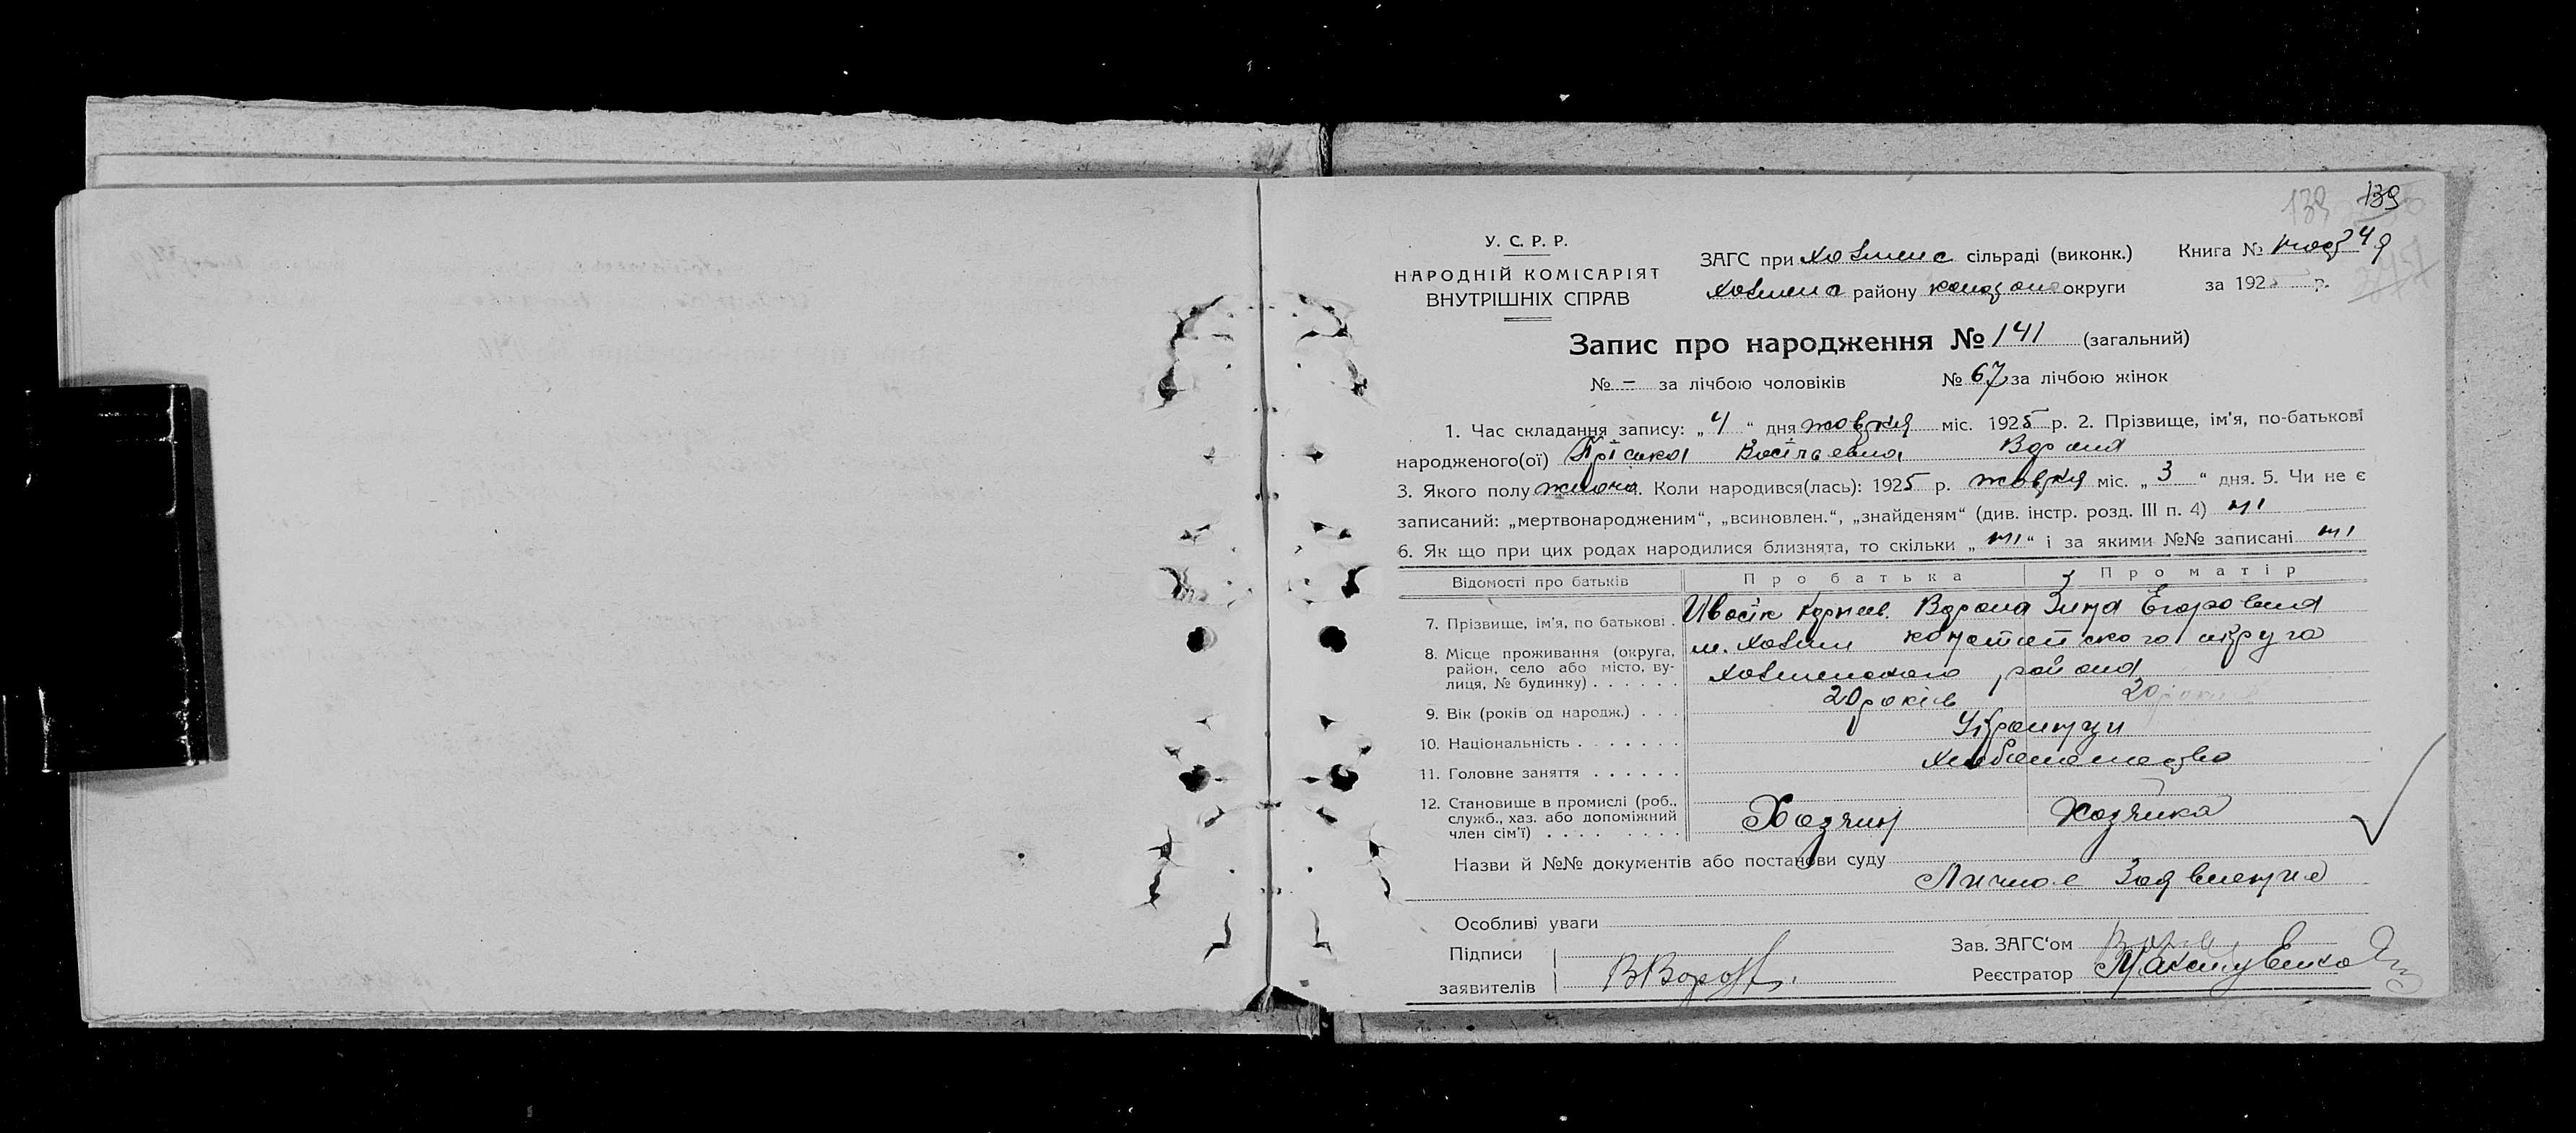 139 139
У. С. Р. Р.
НАРОДНІЙ КОМІСАРІЯТ
ВНУТРІШНІХ СПРАВ
ЗАГС при Ховмис сільраді (виконк.)
району округи
Книга №
за 1925 р.
Запис про народження № 141 (загальний)
№ – за лічбою чоловіків № 67 за лічбою жінок
1. Час складання запису: „4“ дня жовтня міс. 1925 р. 2. Прізвище, ім'я, по-батькові
народженого(ої) Пріська Васільевна Ворона
3. Якого полу жіноча. Коли народився(лась): 1925 р. жовтня міс. „3“ дня. 5. Чи не є
записаний: „мертвонародженим“, „всиновлен.“, „знайденям“ (див. інстр. розд. III п. 4) ні
6. Як що при цих родах народилися близнята, то скільки „ні“ і за якими №№ записані ні
Відомості про батьків Про батька Про матір
7. Прізвище, ім'я, по батькові . Ворона Зина Егоровна
8. Місце проживання (округа, м. Конотопского округа
район, село або місто, ву-
лиця, № будинку) . . . . . . района
9. Вік (років од народж.) . . . 20 років 20 років
10. Національність . . . . . . . Украинци
11. Головне заняття . . . . . . Хлебопашество
12. Становище в промислі (роб.,
служб., хаз. або допоміжний
член сім'ї) . . . . . . . . Хозяин Хозяйка
Назви й №№ документів або постанови суду
Личное Заявление
Особливі уваги
Підписи
заявителів ВВорона
Зав. ЗАГС'ом
Реєстратор